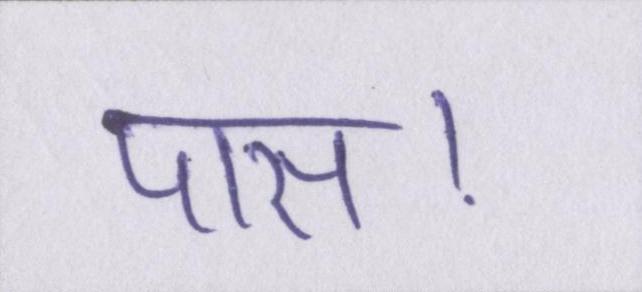 पास!